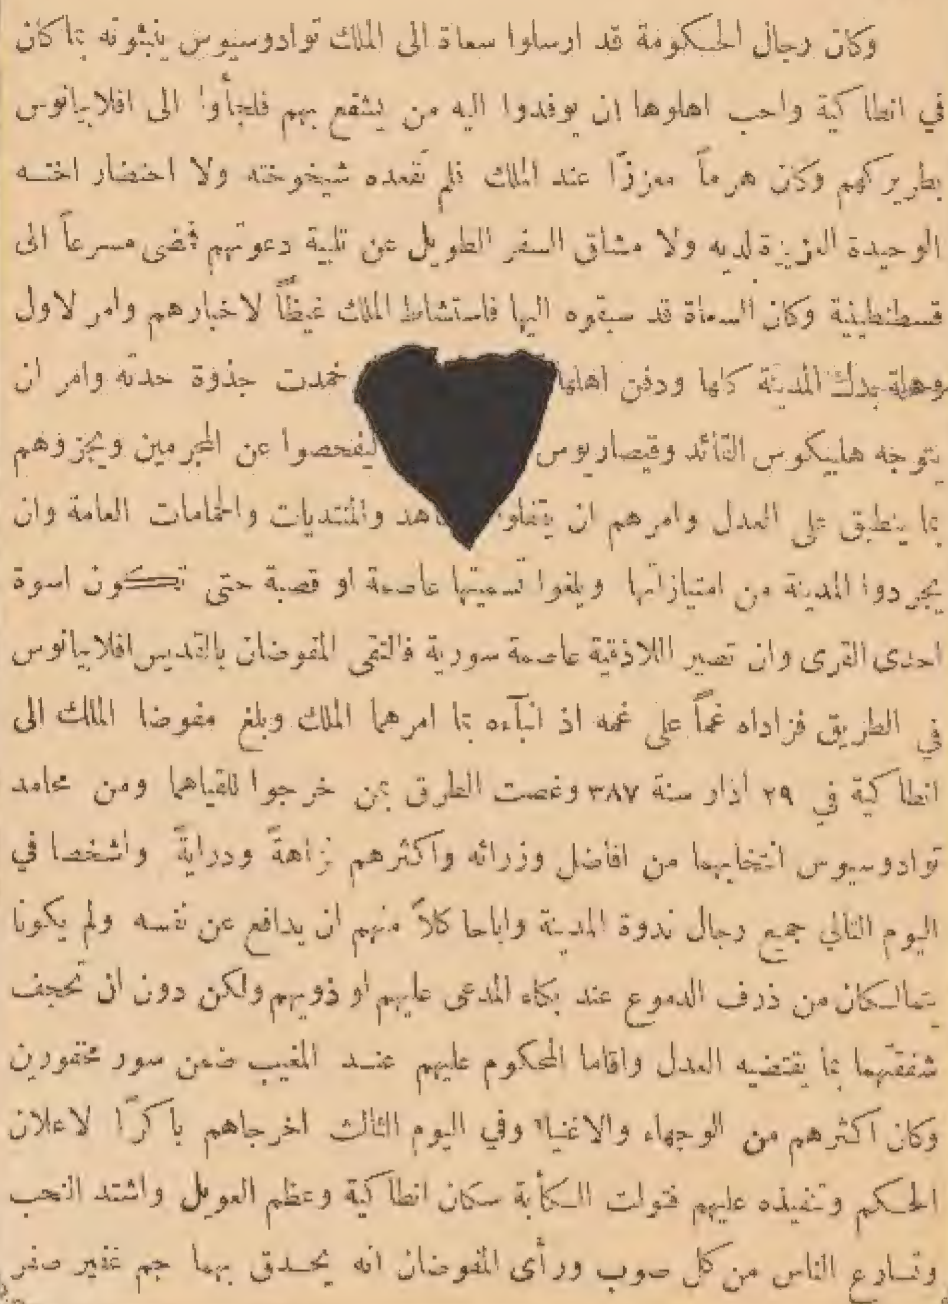 وكان رجال الحكومة قد ارسلوا سعاة الى الملك توادوسيوس ينبئونه بما كان
في انطاكية واحب اهلوها ان يوفدوا اليه من يشفع بهم فلجأوا الى افلابيانوس
بطريركهم وكان هرماً معززًا عند الملك فلم تقعده شيخوخته ولا احتضار اخته
الوحيدة العزيزة لديه ولا مشاق السفر الطويل عن تلبية دعوتهم فمضى مسرعاً الى
قسطنطينية وكان السعاة قد سبقوه اليها فاستشاط الملك غيظاً لاخبارهم وامر لاول
وهلة بدك المدينة كلها ودفن اهلها خمدت جذوة حدته وامر ان
يتوجه هلبيكوس القائد وقيصاريوس ليفحصوا عن المجرمين ويجزوهم
بما ينطبق على العدل وامرهم ان والمنتديات والحمامات العامة وان
يجردوا المدينة من امتيازاتها ويلغوا تسميتها عاصمة او قصبة حتى تكون اسوة
احدى القرى وان تصير اللاذقية عاصمة سورية فالتقى المفوضان بالقديس افلابيانوس
في الطريق فزاداه غماً على غمه اذ انبآءه بما امرهما الملك وبلغ مفوضا الملك الى
انطاكية في ٢٩ اذار سنة ٣٨٧ وغصت الطرق بمن خرجوا للقياهما ومن محامد
توادوسيوس انتخابهما من افاضل وزرائه واكثرهم نزاهةً ودرايةً واشخصا في
اليوم التالي جميع رجال ندوة المدينة واباحا كلاً منهم ان يدافع عن نفسه ولم يكونا
يتمالكان من ذرف الدموع عند بكاء المدعى عليهم او ذويهم ولكن دون ان تجحف
شفقتهما بما يقتضيه العدل واقاما المحكوم عليهم عند المغيب ضمن سور مخفورين
وكان اكثرهم من الوجهاء والاغنياء وفي اليوم الثالث اخرجاهم باكرًا لاعلان
الحكم وتنفيذه عليهم فتولت الكأبة سكان انطاكية وعظم العويل واشتد النحب
وتسارع الناس من كل صوب ورأى المفوضان انه يحدق بهما جم غفير صفر